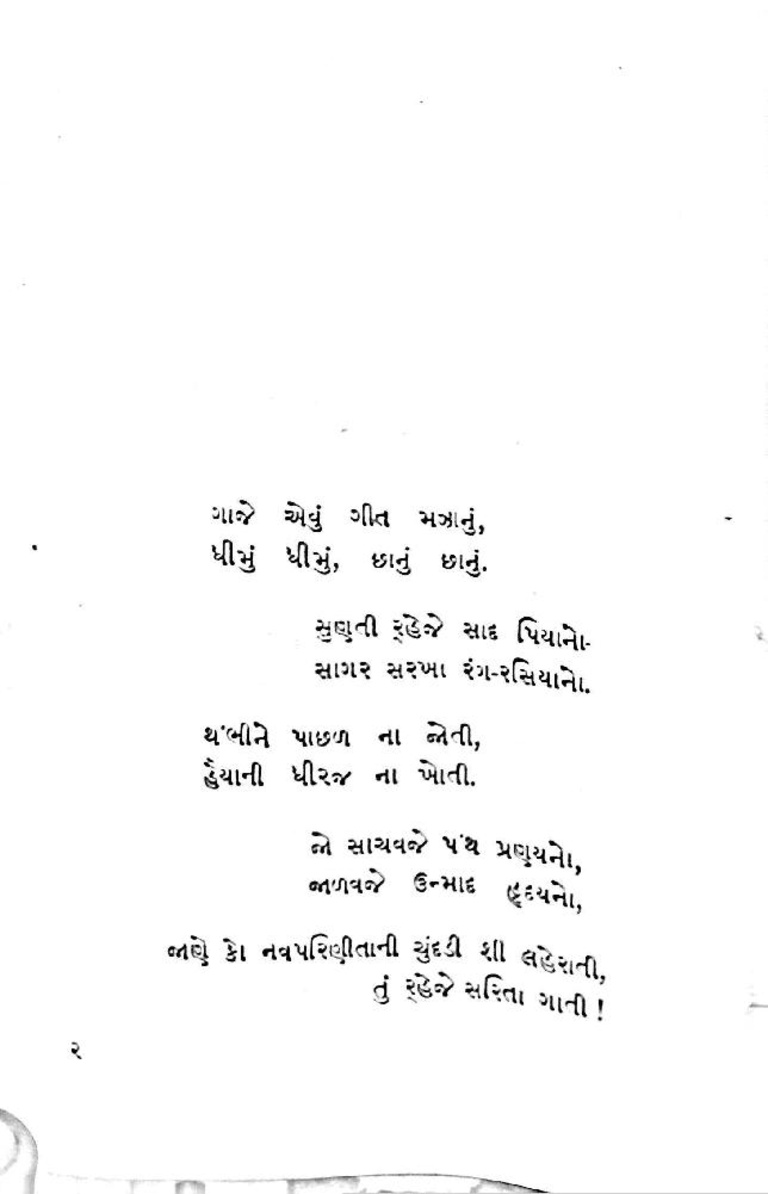 ગાજે એવું ગીત મઝાનું,
ધીમું ધીમું, છાનું છાનું.
સુણતી ર્‌હેજે સાદ પિયાનો-
સાગર સરખા રંગ-રસિયાનો.
થંભીને પાછળ ના જોતી,
હૈયાની ધીરજ ના ખોતી.
જો સાચવજે પંથ પ્રણયનો,
જાળવજે ઉન્માદ હૃદયનો,
જાણે કો નવપરિણીતાની ચુંદડી શી લહેરાતી,
તું ર્‌હેજે સરિતા ગાતી !
૨